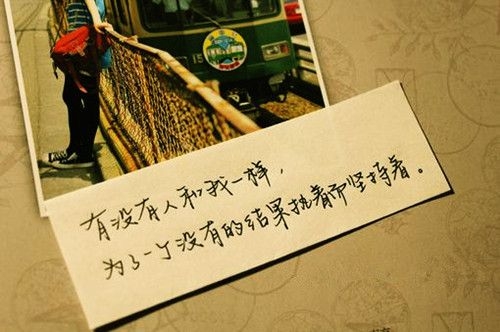 15
有没有人和我一样,
为了一个没有的结果执着而坚持着。